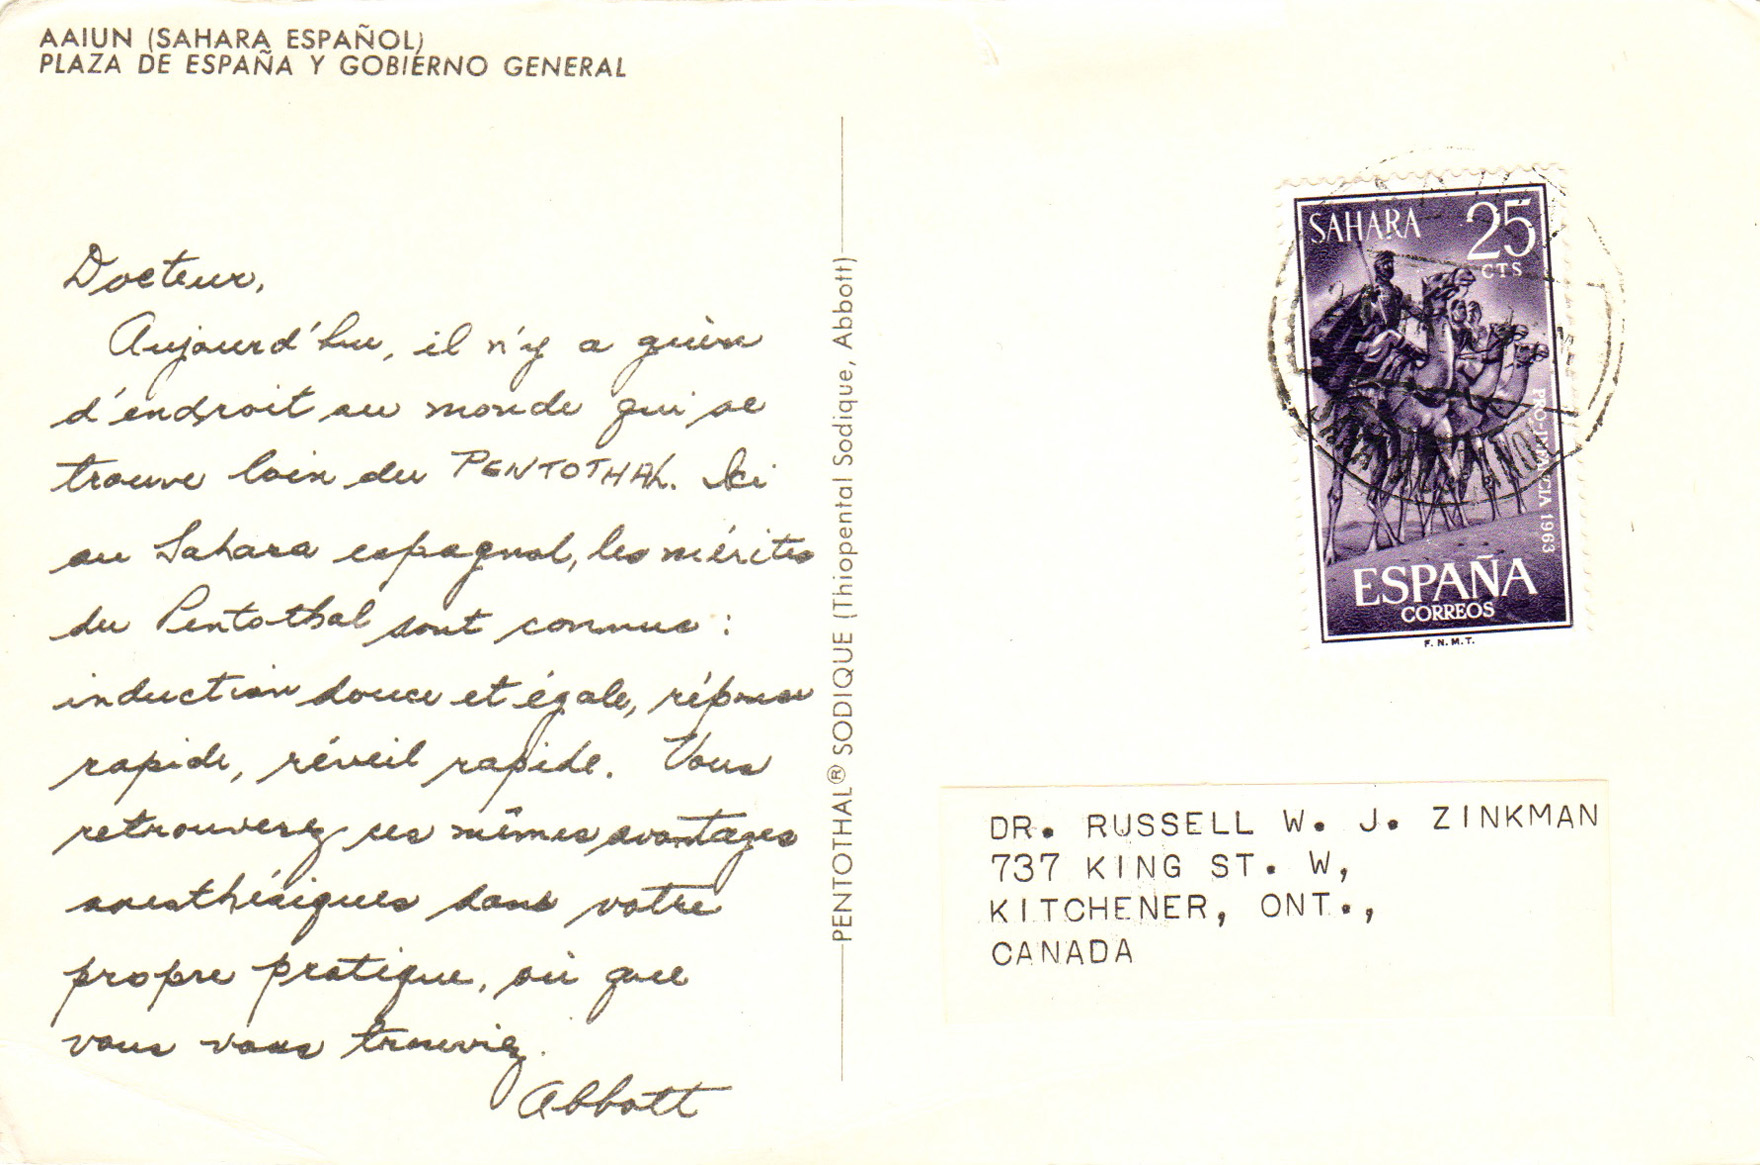 AAIUN (SAHARA ESPAÑOL)
PLAZA DE ESPAÑA Y GOBIERNO GENERAL
Docteur,
Aujourd'hui, il n'y a guère
d'endroit au monde qui se
trouve loin du PENTOTHAL. Ici
au Sahara espagnol, les mérites
du Pentothal sont connus :
induction douce et égale, réponse
rapide, réveil rapide. Vous
retrouverez ces mêmes avantages
anesthésiques dans votre
propre pratique, où que
vous vous trouviez.
Abbott
PENTOTHAL® SODIQUE (Thiopental Sodique, Abbott)
SAHARA 25
CTS
PRO-INFANCIA 1963
ESPAÑA
CORREOS
F.N.M.T.
DR. RUSSELL W. J. ZINKMAN
737 KING ST. W,
KITCHENER, ONT.,
CANADA